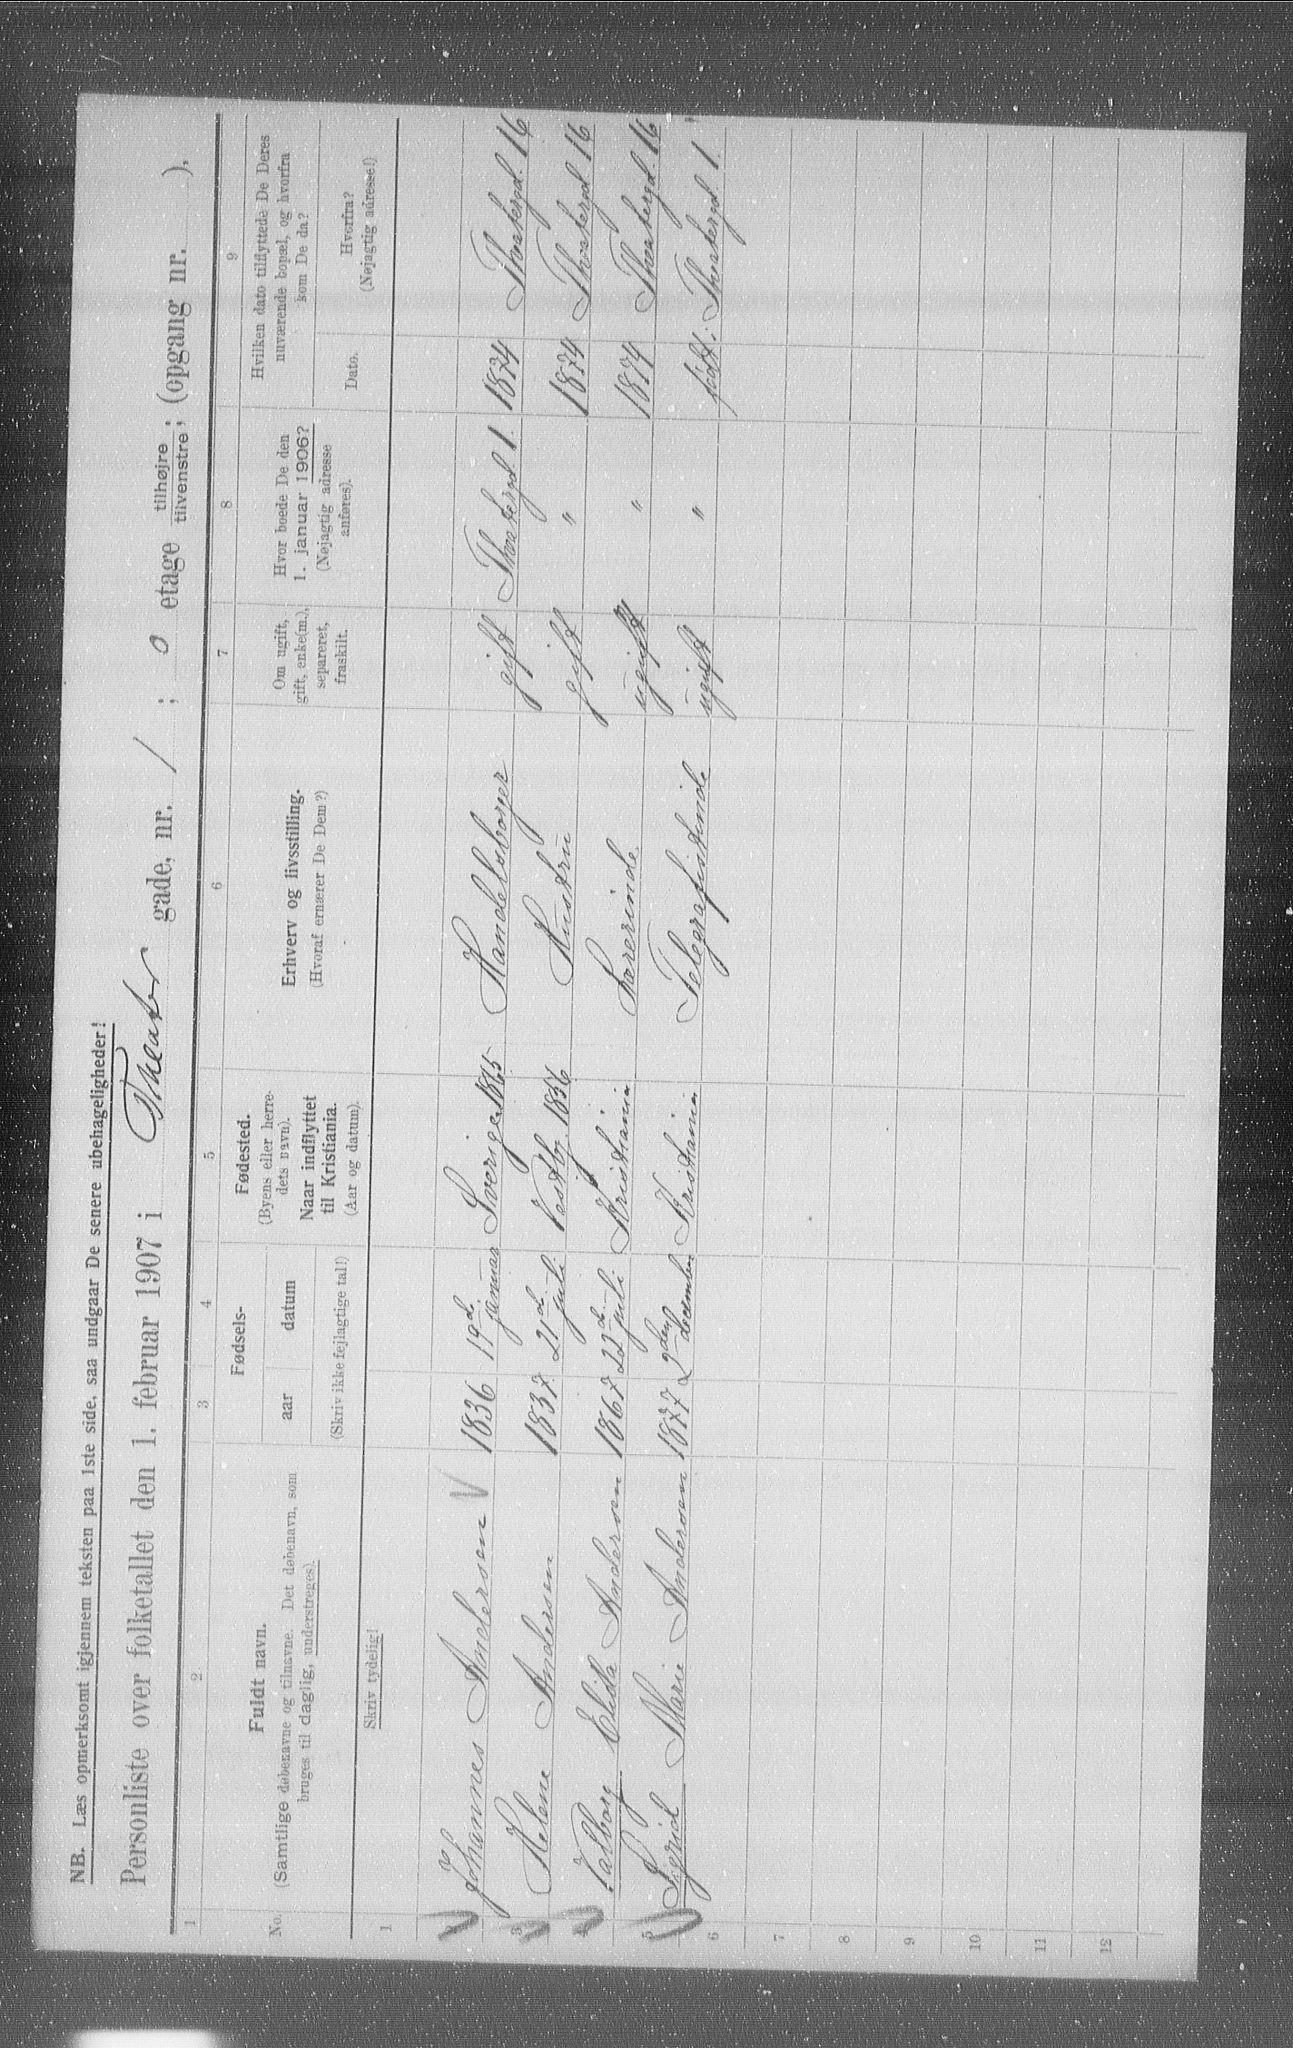 NB. Læs opmerksomt igjennem teksten paa 1ste side, saa undgaar De senere ubehageligheder!
Personliste over folketallet den 1. februar 1907 i Theater gade, nr. 1 ; 0 etage tilhøjre tilvenstre; (opgang nr. ).
1 2 3 4 5 6 7 8 9
No. Fuldt navn. (Samtlige døbenavne og tilnavne. Det døbenavn, som bruges til daglig, understreges).
Fødsels-
aar datum
(Skriv ikke fejlagtige tal!)
Fødested. (Byens eller herredets navn). Naar indflyttet til Kristiania. (Aar og datum).
Erhverv og livsstilling. (Hvoraf ernærer De Dem?)
Om ugift, gift, enke(m.), separeret, fraskilt.
Hvor boede De den 1. januar 1906? (Nøjagtig adresse anføres).
Hvilken dato tilflyttede De Deres nuværende bopæl, og hvorfra kom De da?
Dato. Hvorfra? (Nøjagtig adresse!)
Skriv tydelig!
1
2 Johannes Andersen V 1836 19de januar Sverige 1865 Handelsborger gift Theatergd 1. 1874 Theatergd. 16
3 Helene Andersen 1837 21de juli Vestby 1856 Hustru gift " 1874 Theatergd 16
4 Valborg Elida Andersen 1867 22de juli Kristiania Lærerinde ugift " 1874 Theatergd. 16
5 Sigrid Marie Andersen 1877 2den december Kristiania Telegrafistinde ugift " født. Theatergd 1.
6
7
8
9
10
11
12